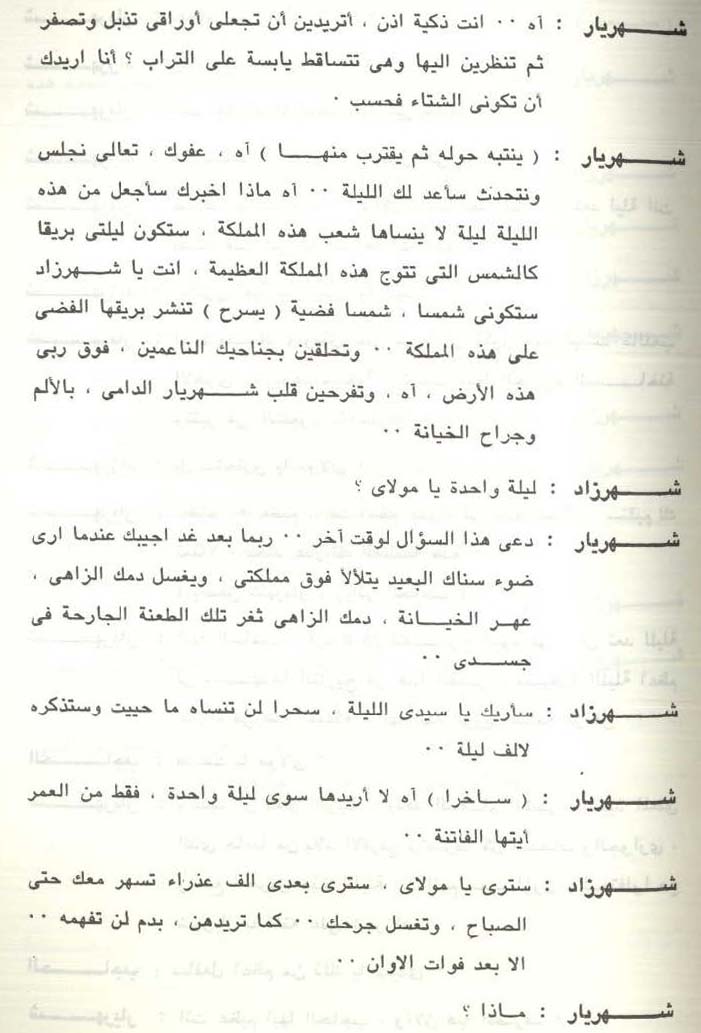 شـــهريار : آه ·· انت ذكية اذن ، أتريدين أن تجعلى أوراقى تذبل وتصفر
ثم تنظرين اليها وهى تتساقط يابسة على التراب ؟ أنا اريدك
أن تكونى الشتاء فحسب ·
شـــهريار : ( ينتبه حوله ثم يقترب منهـــا ) آه ، عفوك ، تعالى نجلس
ونتحدث سأعد لك الليلة ·· آه ماذا اخبرك سأجعل من هذه
الليلة ليلة لا ينساها شعب هذه المملكة ، ستكون ليلتى بريقا
كالشمس التى تتوج هذه المملكة العظيمة ، انت يا شـــهرزاد
ستكونى شمسا ، شمسا فضية ( يسرح ) تنشر بريقها الفضى
على هذه المملكة ·· وتحلقين بجناحيك الناعمين ، فوق ربى
هذه الأرض ، آه ، وتفرحين قلب شـــهريار الدامى ، بالألم
وجراح الخيانة ··
شـــهرزاد : ليلة واحدة يا مولاى ؟
شـــهريار : دعى هذا السؤال لوقت آخر ·· ربما بعد غد اجيبك عندما ارى
ضوء سناك البعيد يتلألأ فوق مملكتى ، ويغسل دمك الزاهى ،
عهـر الخيـــانة ، دمك الزاهى ثغر تلك الطعنة الجارحة فى
جســـدى ··
شـــهرزاد : سأريك يا سيدى الليلة ، سحرا لن تنساه ما حييت وستذكره
لالف ليلة ··
شـــهريار : ( ســاخرا ) آه لا أريدها سوى ليلة واحدة ، فقط من العمر
أيتها الفاتنة ··
شـــهرزاد : سترى يا مولاى ، سترى بعدى الف عذراء تسهر معك حتى
الصباح ، وتغسل جرحك ·· كما تريدهن ، بدم لن تفهمه ··
الا بعد فوات الاوان ··
شـــهريار : مـاذا ؟